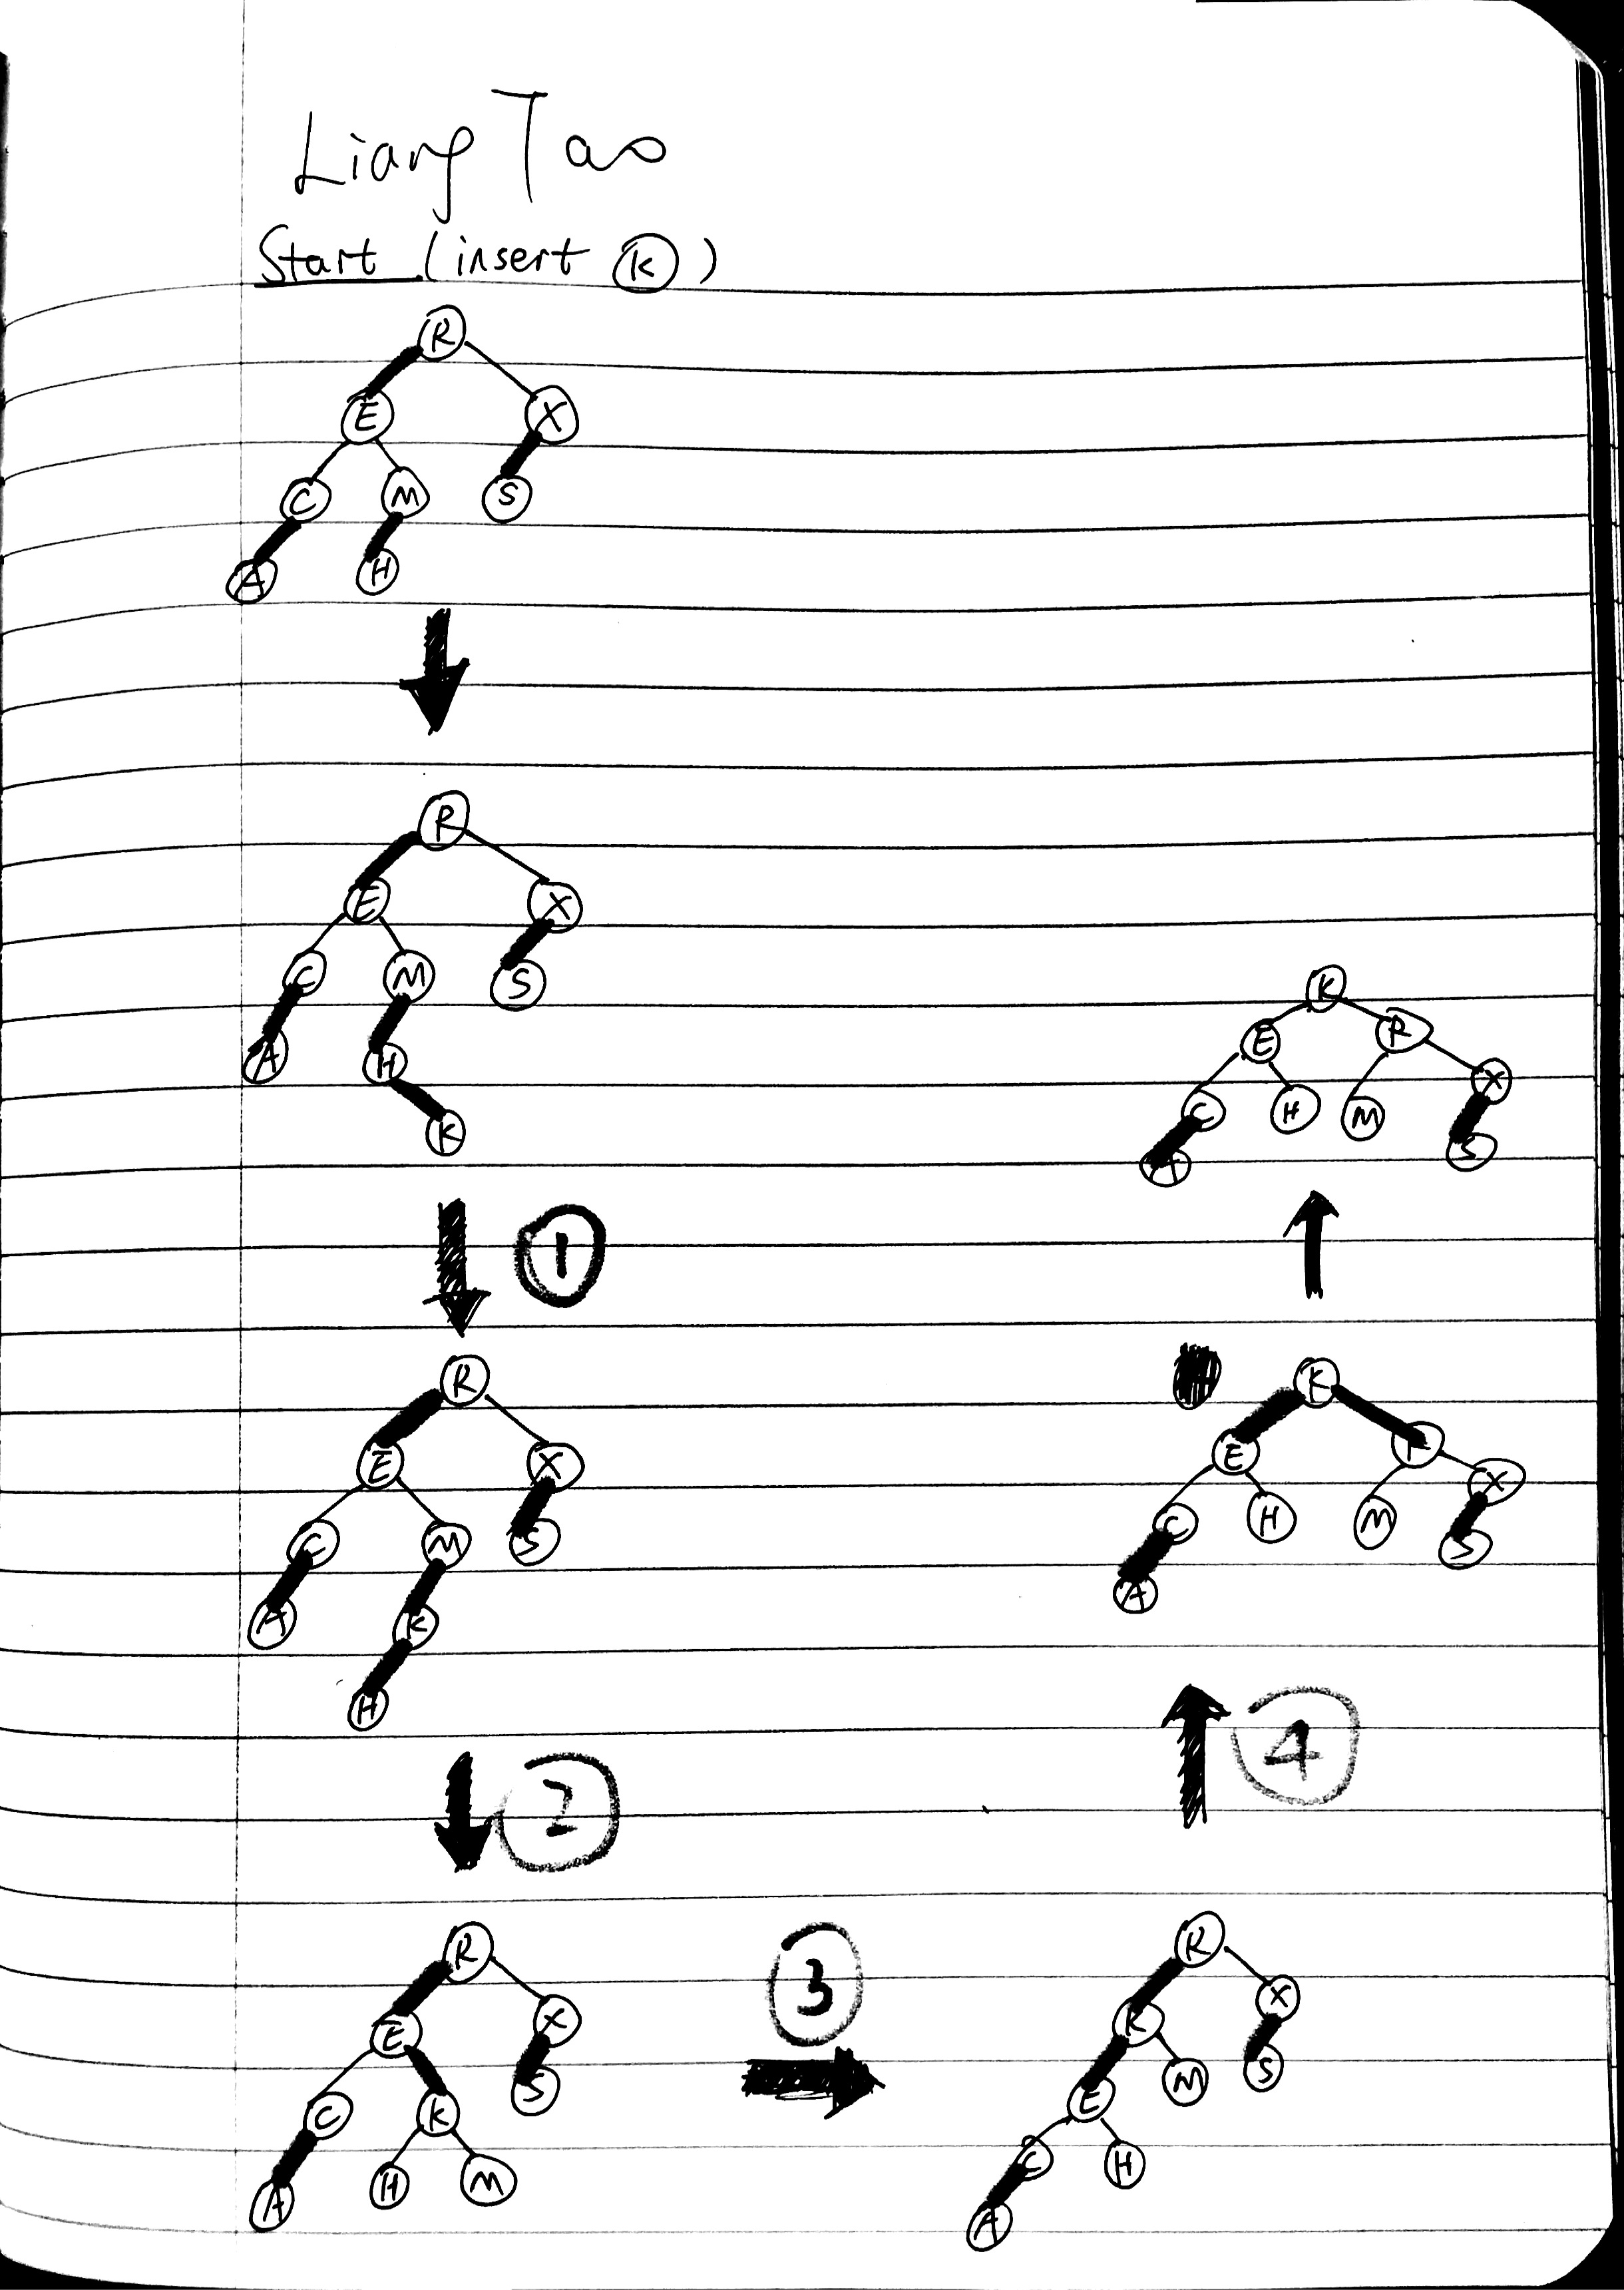 Liang Tao
Start (insert K)
R
E X
C M S
A H
R
E X
C M S
A H
K
1
R
E X
C M S
A K
H
2
R
E X
C K S
A H M
3
R
K X
E M S
C H
A
4
K
E
X
C H M S
A
K
E R
X
C H M
S
A